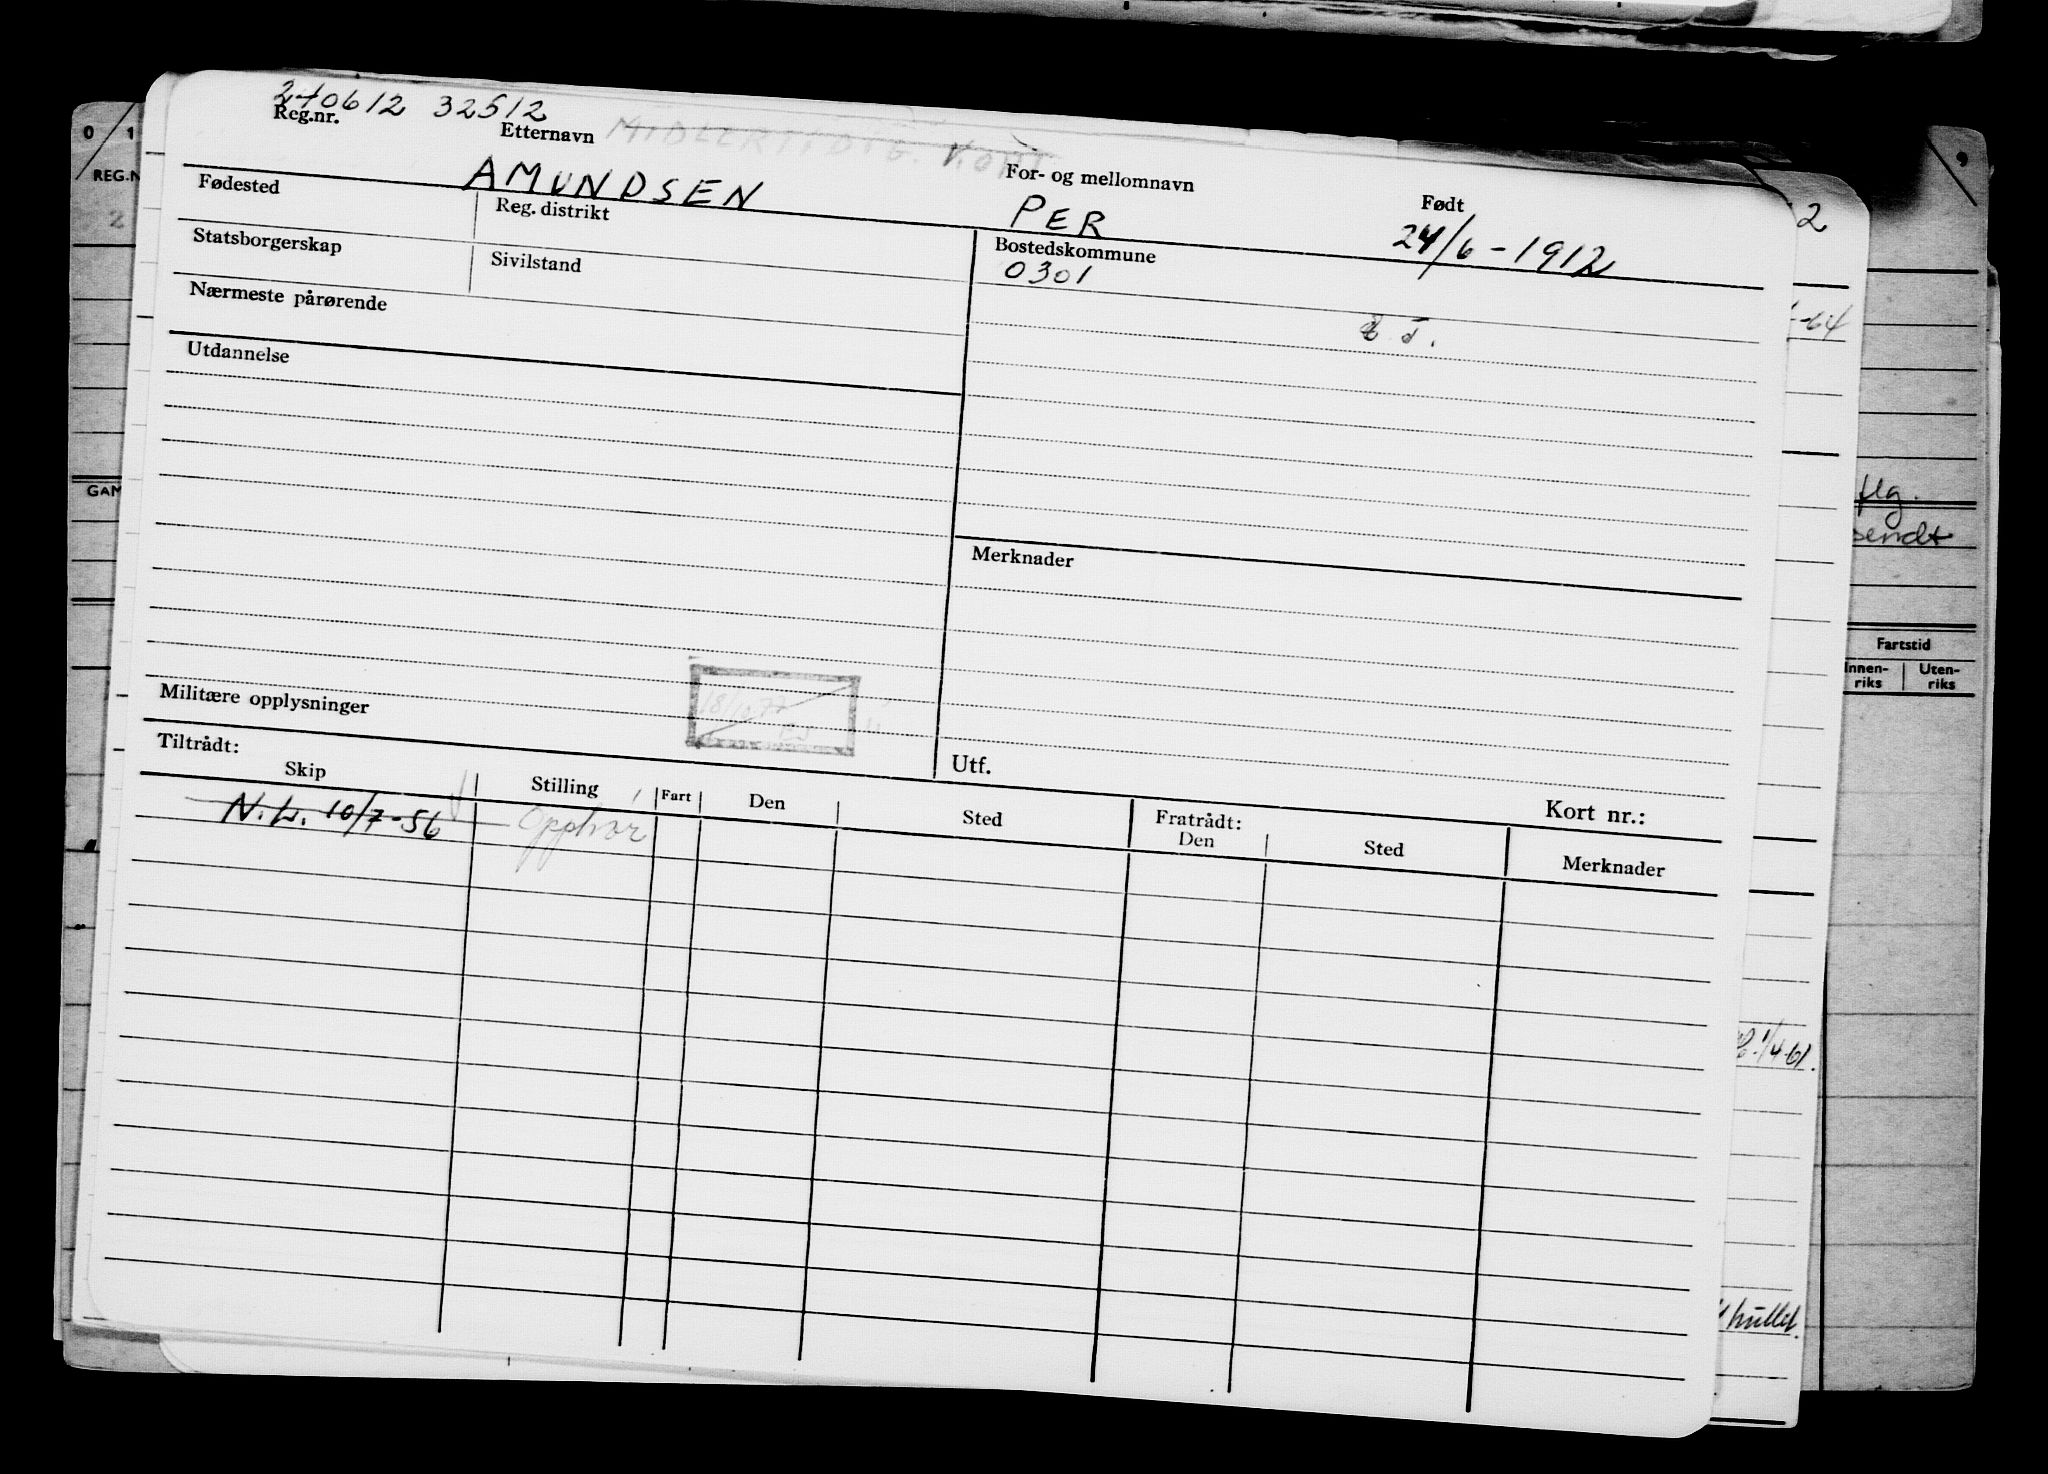 240612 32512
Reg.nr.
Etternavn MIDLERTIDIG KORT
For- og mellomnavn
Født
AMUNDSEN
PER
24/6-1912
Fødested
Reg. distrikt
Bostedskommune
0301
Statsborgerskap
Sivilstand
Nærmeste pårørende
Utdannelse
Merknader
Militære opplysninger
Utf.
Kort nr.:
Tiltrådt:
Fratrådt:
Skip
Stilling
Fart
Den
Sted
Den
Sted
Merknader
N.L. 10/7-56
Opphør
0 1
REG.N
2
GAM
9
2
-64
flg.
sendt
Fartstid
Innen-
riks
Uten-
riks
1/4-61.
hullet.